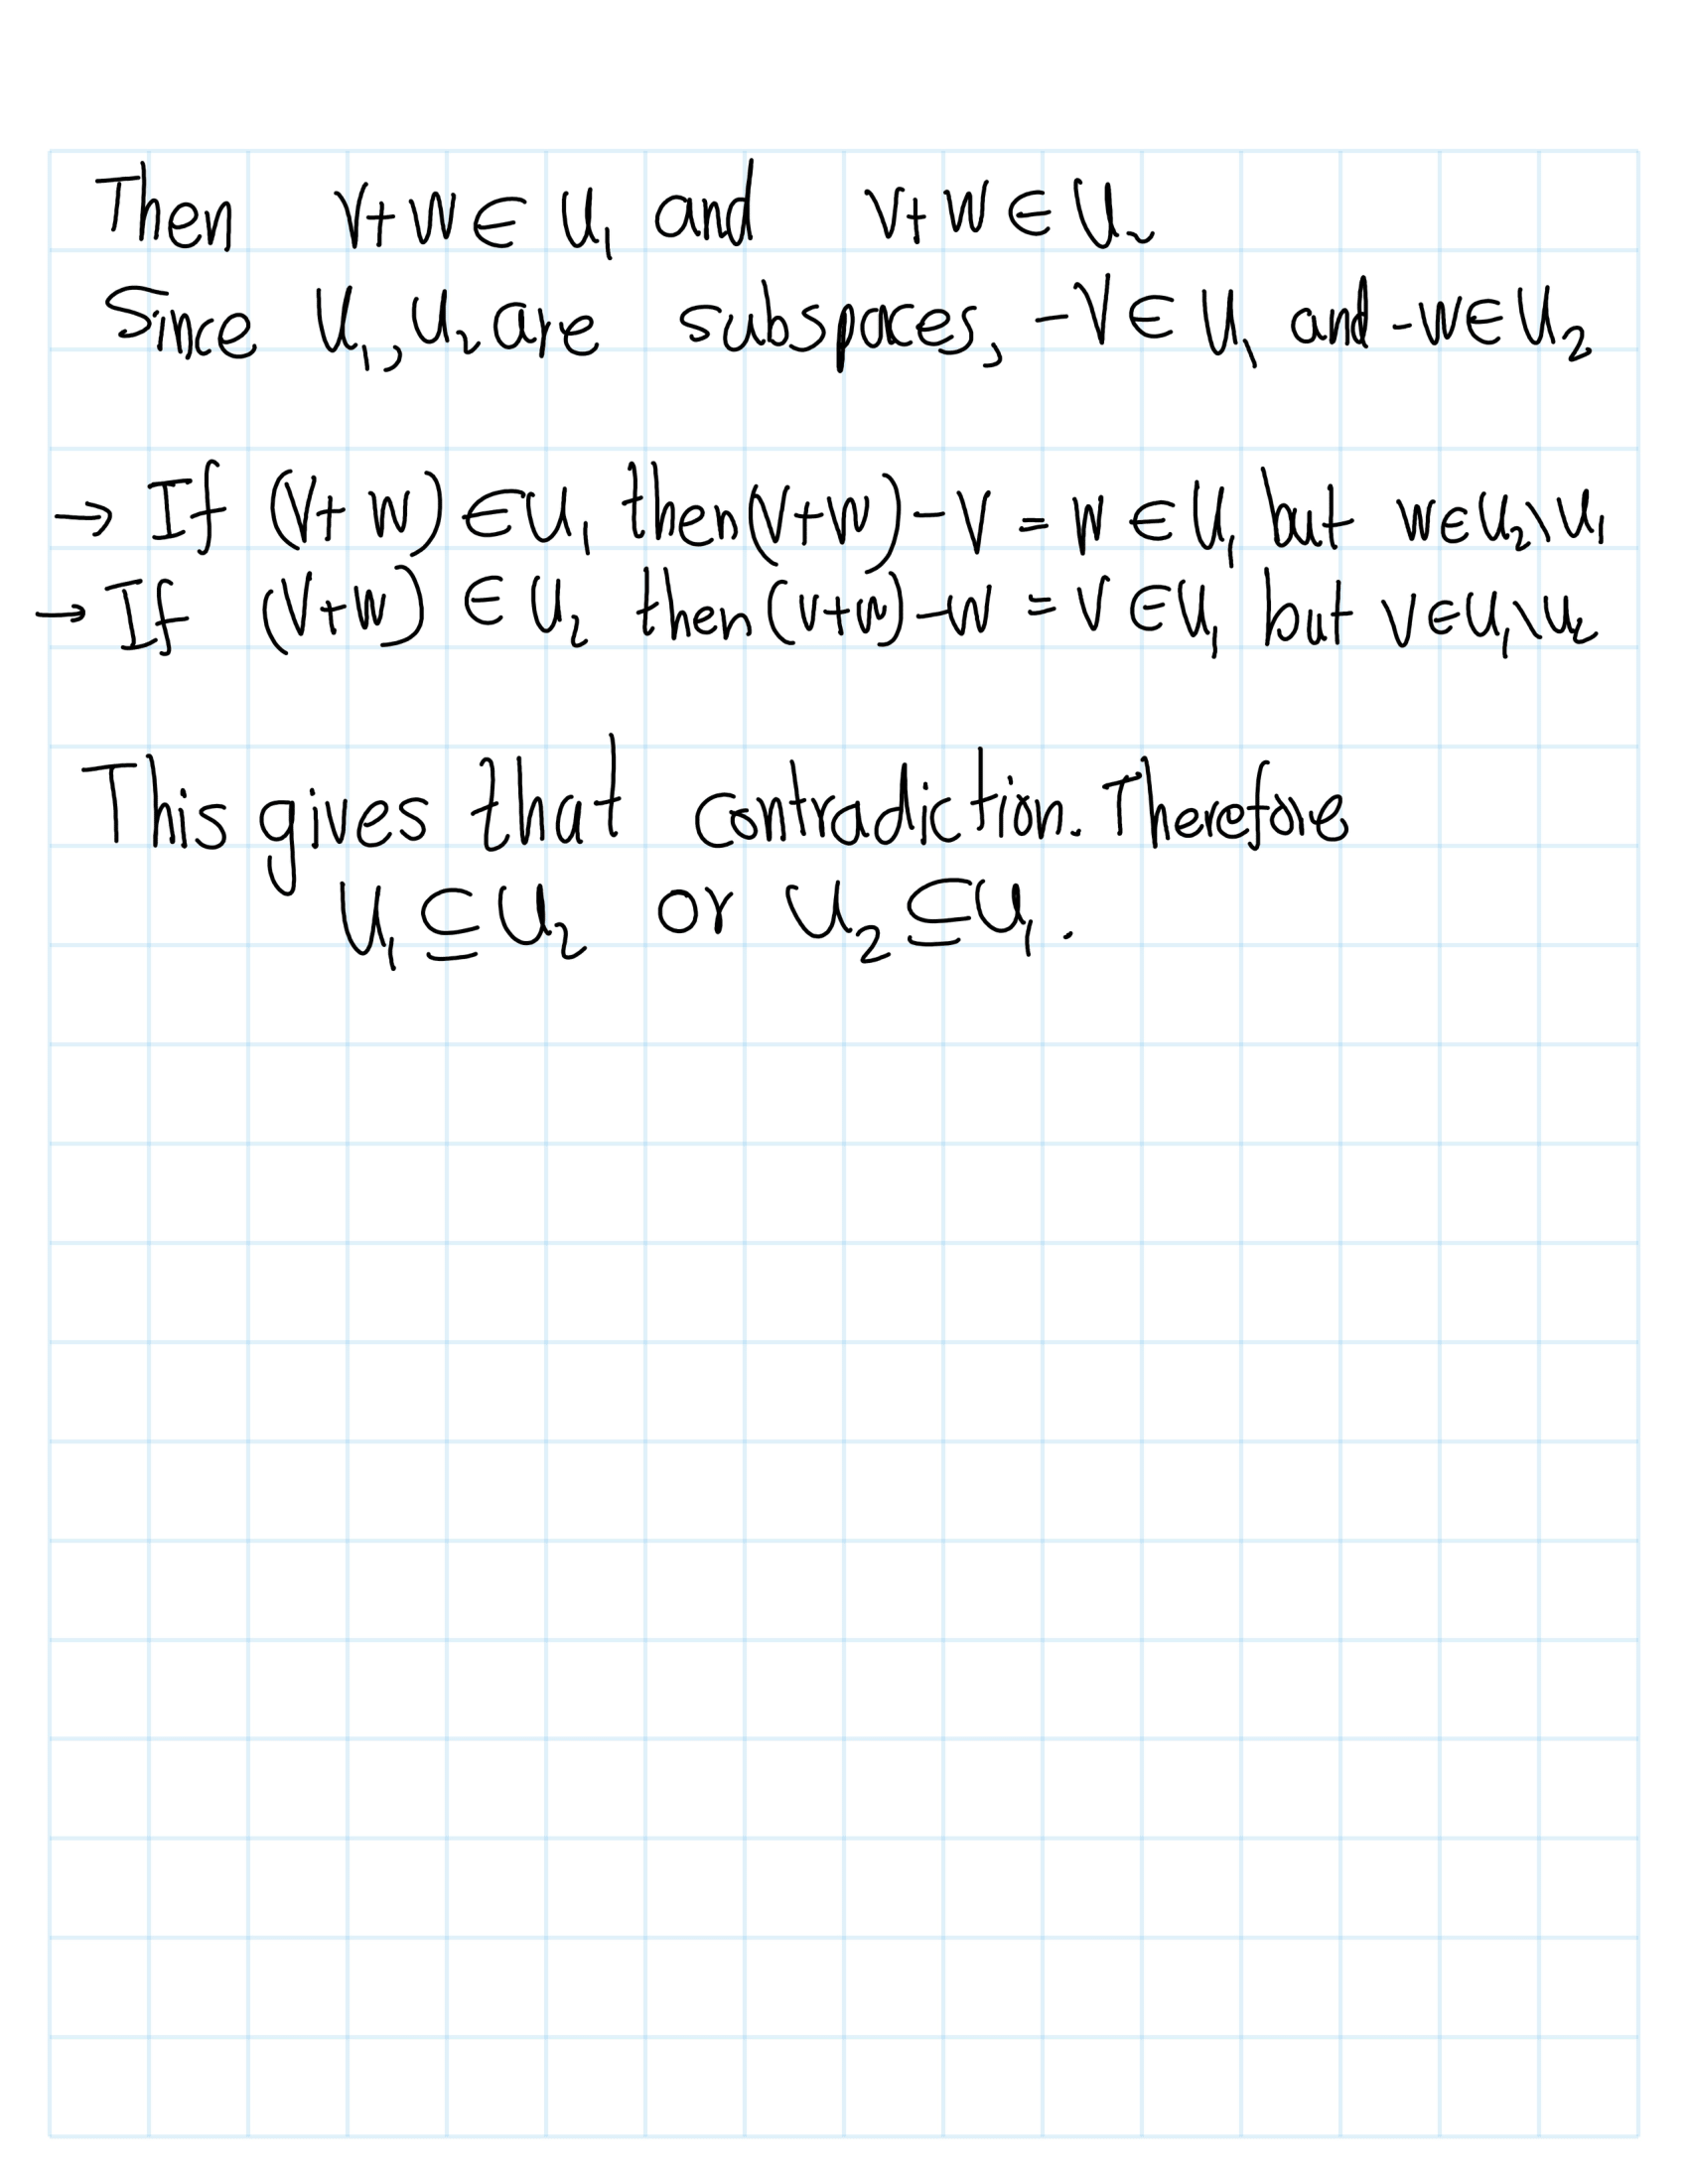 Then V+W ∈ U₁ and V+W ∈ U₂
Since U₁, U₂ are subspaces, -V ∈ U₁ and -W ∈ U₂
→ If (V+W) ∈ U₁ then (V+W) - V = W ∈ U₁ but W ∈ U₂\U₁
→ If (V+W) ∈ U₂ then (V+W) - W = V ∈ U₁ but V ∈ U₁\U₂
This gives that contradiction. Therefore
U₁ ⊆ U₂ or U₂ ⊆ U₁.